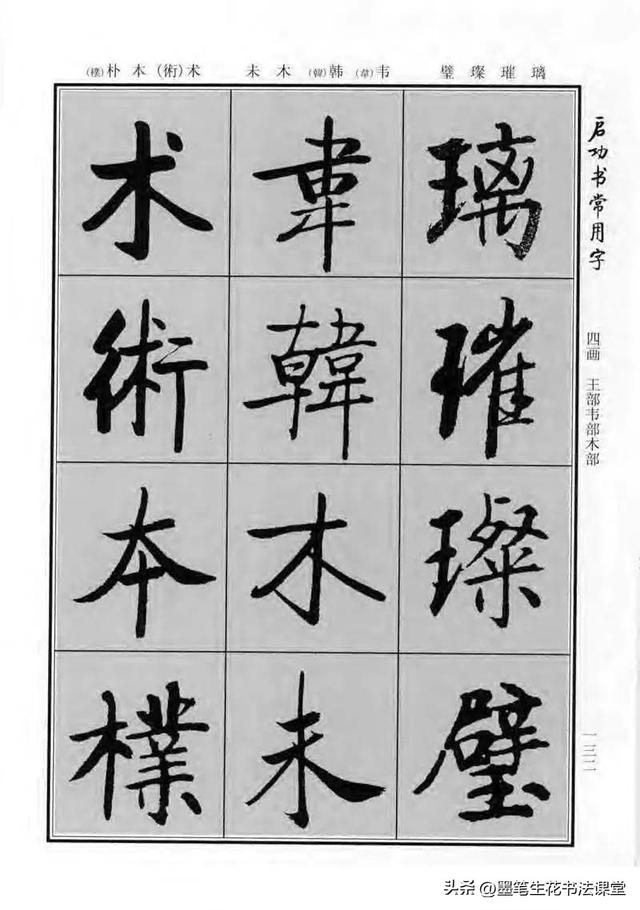 启功书常用字
四画 王部韦部木部
一三二
璃 璀 璨 璧 韦(韋) 韩(韓) 木 未 术(術) 本 朴(樸)
璃
璀
璨
璧
韋
韓
木
未
术
術
本
樸
头条 @墨笔生花书法课堂